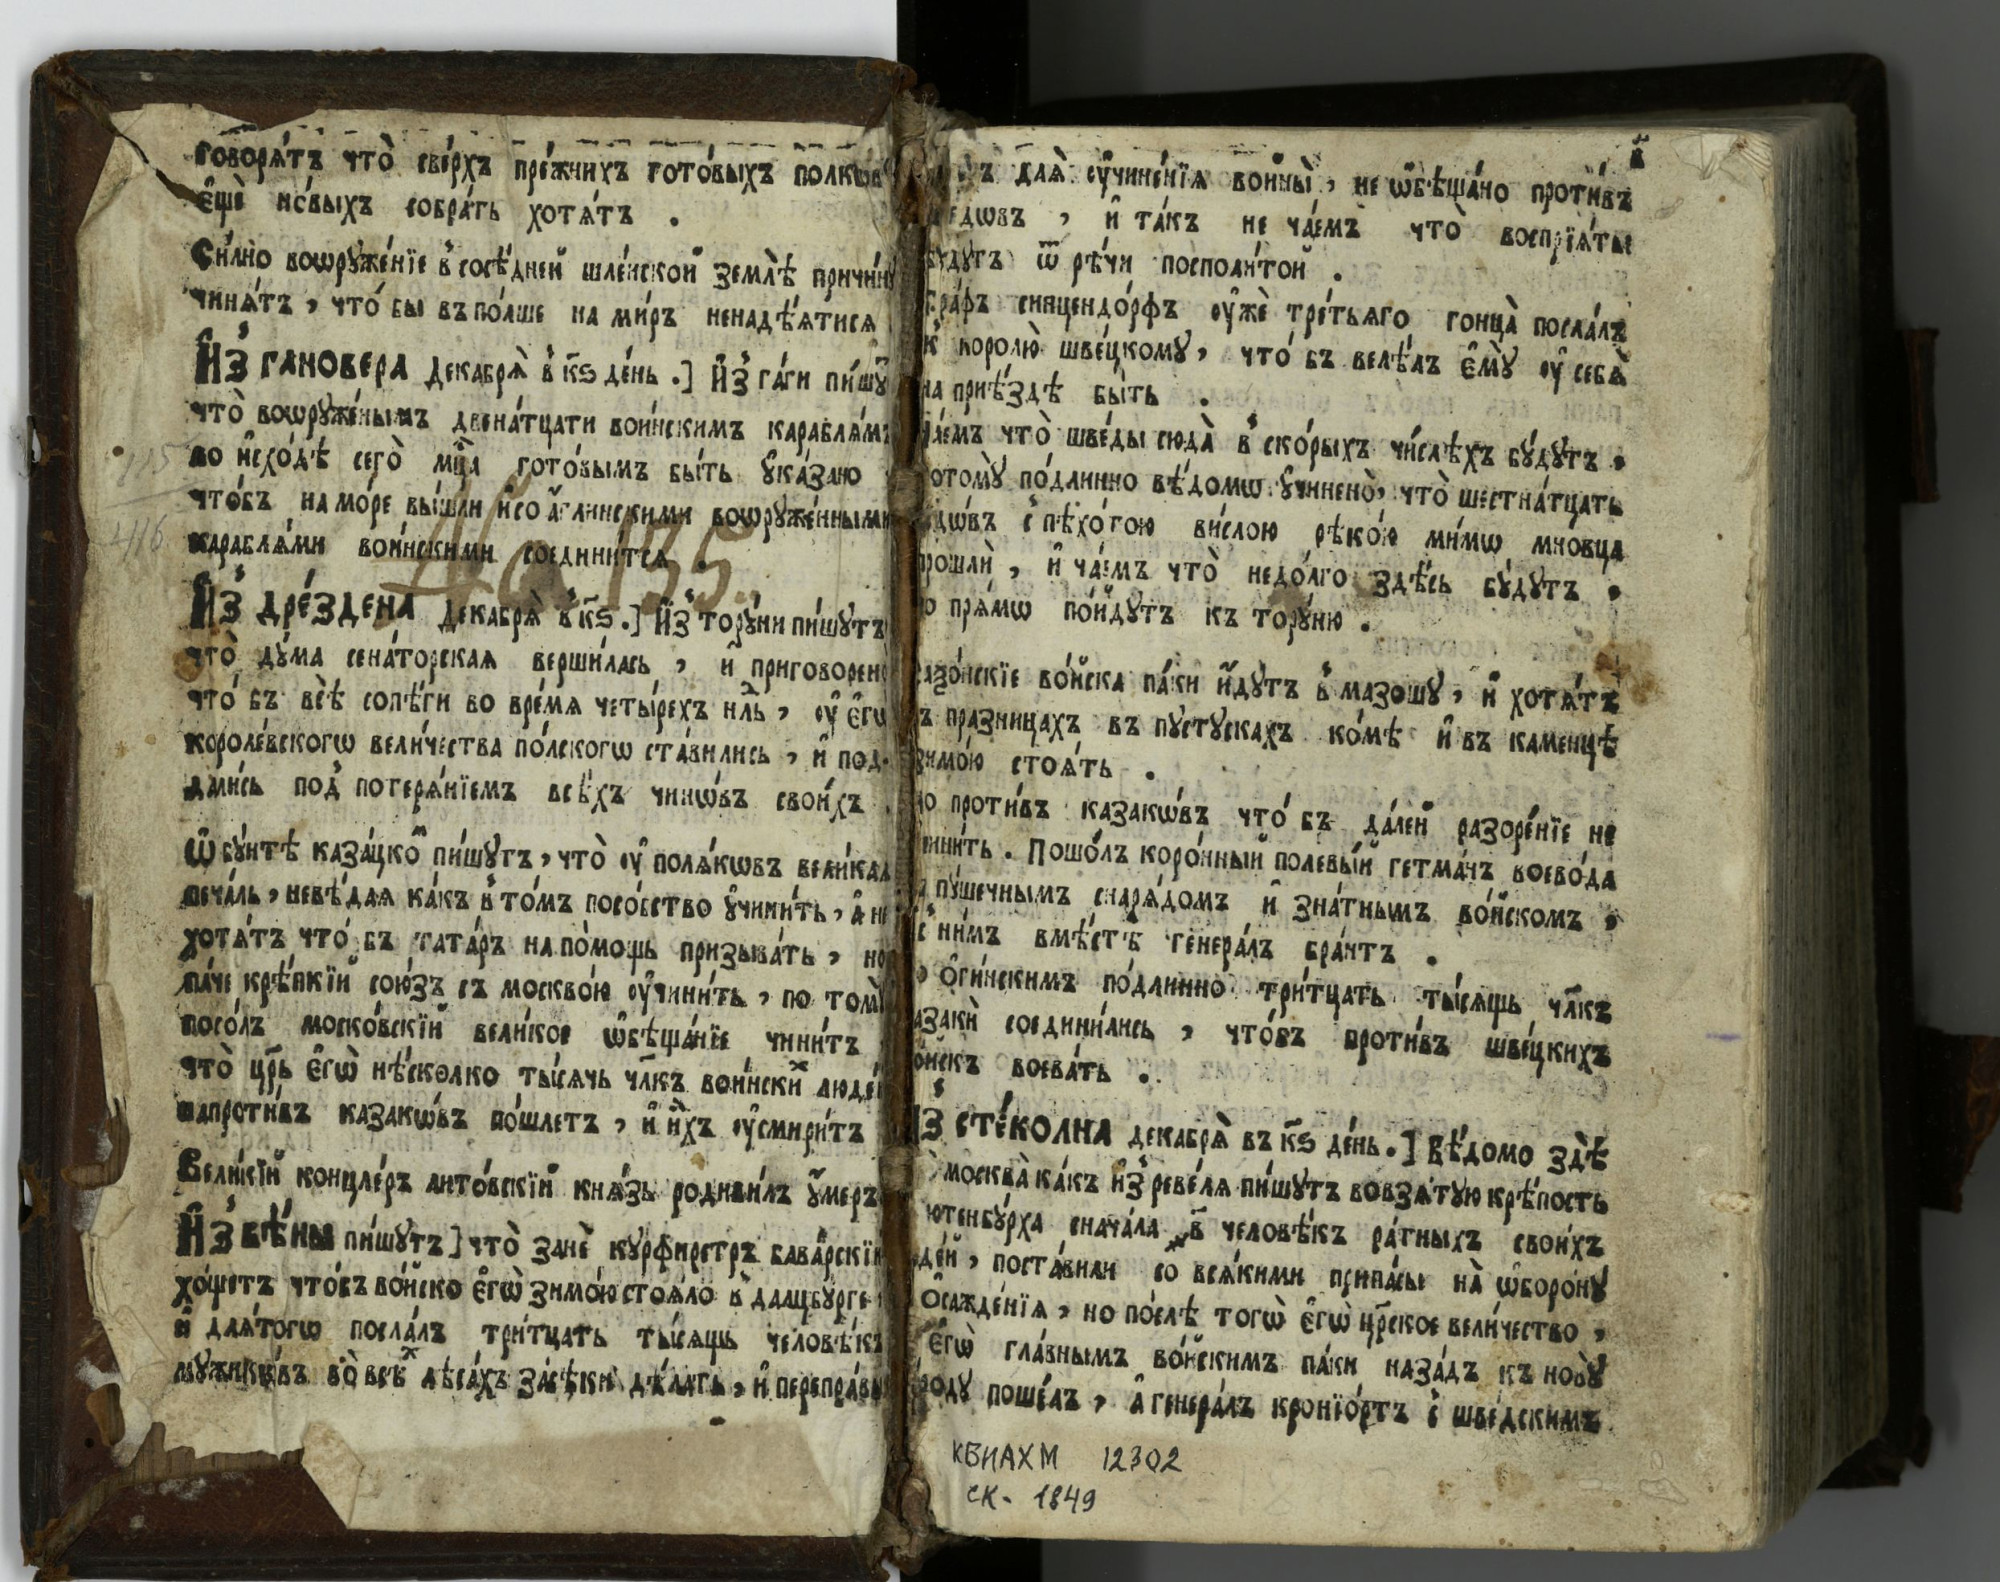 говорѧ́тъ что̀ све́рхъ пре́жнихъ гото́выхъ полкѡвъ
є҆щѐ но́выхъ собра́ть хотѧ́тъ .
Си́лно воѡрꙋже́нїе в̾ сосѣ́дней шле́нской землѣ̀ причинꙋ
чинѧ́тъ , что́ бы въ по́лше на ми́ръ ненадѣ́ѧтисѧ
И҆з̾ ГАНОВЕРА декабрѧ̀ в̾ к҃ѕ де́нь .] И҆з̾ га́ги пи́шꙋ
что̀ воѡрꙋже́нымъ двена́тцати вои́нскимъ караблѧ́мъ
во и҆схо́дѣ сегѡ̀ мц҃а гото́вымъ бы́ть ᲂу҆ка́зано
что́бъ на мо́ре вы́шли и҆ со а҆глинскими воѡрꙋже́нными
караблѧ́ми вои́нскими соедини́тсѧ .
И҆з̾ ДРЕ́ЗДЕНА декабрѧ̀ в̾ к҃ѕ .] И҆з̾ торꙋ́ни пи́шꙋтъ
что̀ дꙋ́ма сена́торскаѧ верши́лась , и҆ приговорено
что́ бъ всѣ̀ сопѣ́ги во вре́мѧ четы́рехъ нл҃ь , ᲂу҆ є҆гѡ
короле́вскогѡ вели́чества по́лскогѡ ста́вились , и҆ под-
дали́сь под̾ потерѧ́нїемъ всѣ́хъ чинѡ́въ свои́хъ .
Ѡ҆ бꙋ́нтѣ каза́цком пи́шꙋтъ , что̀ ᲂу҆ полѧ́кѡвъ вели́каѧ
печа́ль , невѣ́даѧ ка́къ в̾ то́мъ посо́бство ᲂу҆чини́ть , а҆ не
хотѧ́тъ что́ бъ тата́ръ на по́мощь призыва́ть , но
па́че крѣ́пкїй сою́зъ съ москво́ю ᲂу҆чини́ть , по томꙋ
посо́лъ моско́вскїй вели́кое ѡ҆бѣща́нїе чини́тъ
что̀ цр҃ь є҆гѡ̀ нѣ́сколко ты́сѧчь чл҃къ вои́нских люде́й
напроти́въ казакѡ́въ по́шлетъ , и҆ и҆́хъ ᲂу҆смири́тъ
Вели́кїй концле́ръ лито́вскїй кнѧ́зь родиви́лъ ᲂу҆́меръ
И҆з̾ ВѢ́НЫ пи́шꙋтъ ] что̀ занѐ кꙋрфирстръ бава́рскїй
хо́щетъ что́бъ во́йско є҆гѡ̀ зимо́ю стоѧ́ло в̾ далцбꙋрге
и҆ длѧ́тогѡ посла́лъ три́тцать ты́сѧщь человѣ́къ
мꙋжикѡ́въ во̀ всѣх лѣса́хъ за́сѣки дѣ́лать , и҆ перепра́вы
н҃
длѧ̀ ᲂу҆чине́нїѧ воины̀ , не ѡ҆бѣща́но проти́въ
ше́дѡвъ , и҆ та́къ не ча́емъ что̀ воспрїѧ́ты
бꙋ́дꙋтъ ѿ рѣ́чи посполи́той .
Гра́фъ синцендо́рфъ ᲂу҆жѐ тре́тьѧго гонца̀ посла́лъ
к̾ королю̀ шве́цкомꙋ , что́ бъ велѣ́лъ є҆мꙋ̀ ᲂу҆ себѧ̀
на прїѣ́здѣ бы́ть .
Ча́емъ что̀ шве́ды сюда̀ в̾ ско́рыхъ чи́слѣхъ бꙋ́дꙋтъ ,
потомꙋ̀ по́длинно вѣ́домѡ ᲂу҆чинено̀ , что̀ шестна́тцать
с̾ пѣхо́тою ви́слою рѣко́ю ми́мѡ мновца
прошлѝ , и҆ ча́емъ что̀ недо́лго здѣ́сь бꙋ́дꙋтъ .
но прѧ́мѡ по́йдꙋтъ къ торꙋ́ню .
Сазо́нскїе во́йска па́ки и҆дꙋ́тъ в̾ мазошꙋ , и҆ хотѧ́тъ
въ празницахъ въ пꙋстꙋскахъ ко́мѣ и҆ въ каменцѣ
зимо́ю стоѧ́ть .
Но проти́въ казакѡ́въ что́ бъ да́лей разоре́нїе не
чини́ть . Пошо́лъ коро́нный полевы́й гетма́нъ воево́да
пꙋ́шечнымъ снарѧ́домъ и҆ зна́тнымъ во́йскомъ ,
с̾ ни́мъ вмѣ́стѣ генера́лъ бра́нтъ .
О҆ги́нскимъ по́длинно три́тцать ты́сѧщь чл҃къ
казакѝ соедини́лись , что́бъ проти́въ шве́цкихъ
во́йскъ воева́ть .
И҆з̾ СТЕ́КОЛНА декабрѧ̀ въ к҃ѕ де́нь .] Вѣ́домо здѣ̀
москва̀ ка́къ и҆з̾ реве́лѧ пи́шꙋтъ во взѧ́тꙋю крѣ́пость
ютенбꙋ́рха снача́ла в҃ человѣ́къ ра́тныхъ свои́хъ
люде́й , поста́вили со всѧ́кими припа́сы на̀ ѡ҆боро́нꙋ
О҆сажде́нїѧ , но по́слѣ тогѡ̀ є҆гѡ̀ цр҃ское вели́чество ,
є҆гѡ̀ гла́внымъ во́йскимъ па́ки наза́дъ къ новꙋ
го́родꙋ поше́лъ , а҆ генера́лъ кронїо́ртъ с̾ шве́дскимъ
КБИАХМ 12302
СК- 1849
№ 135.
115
416